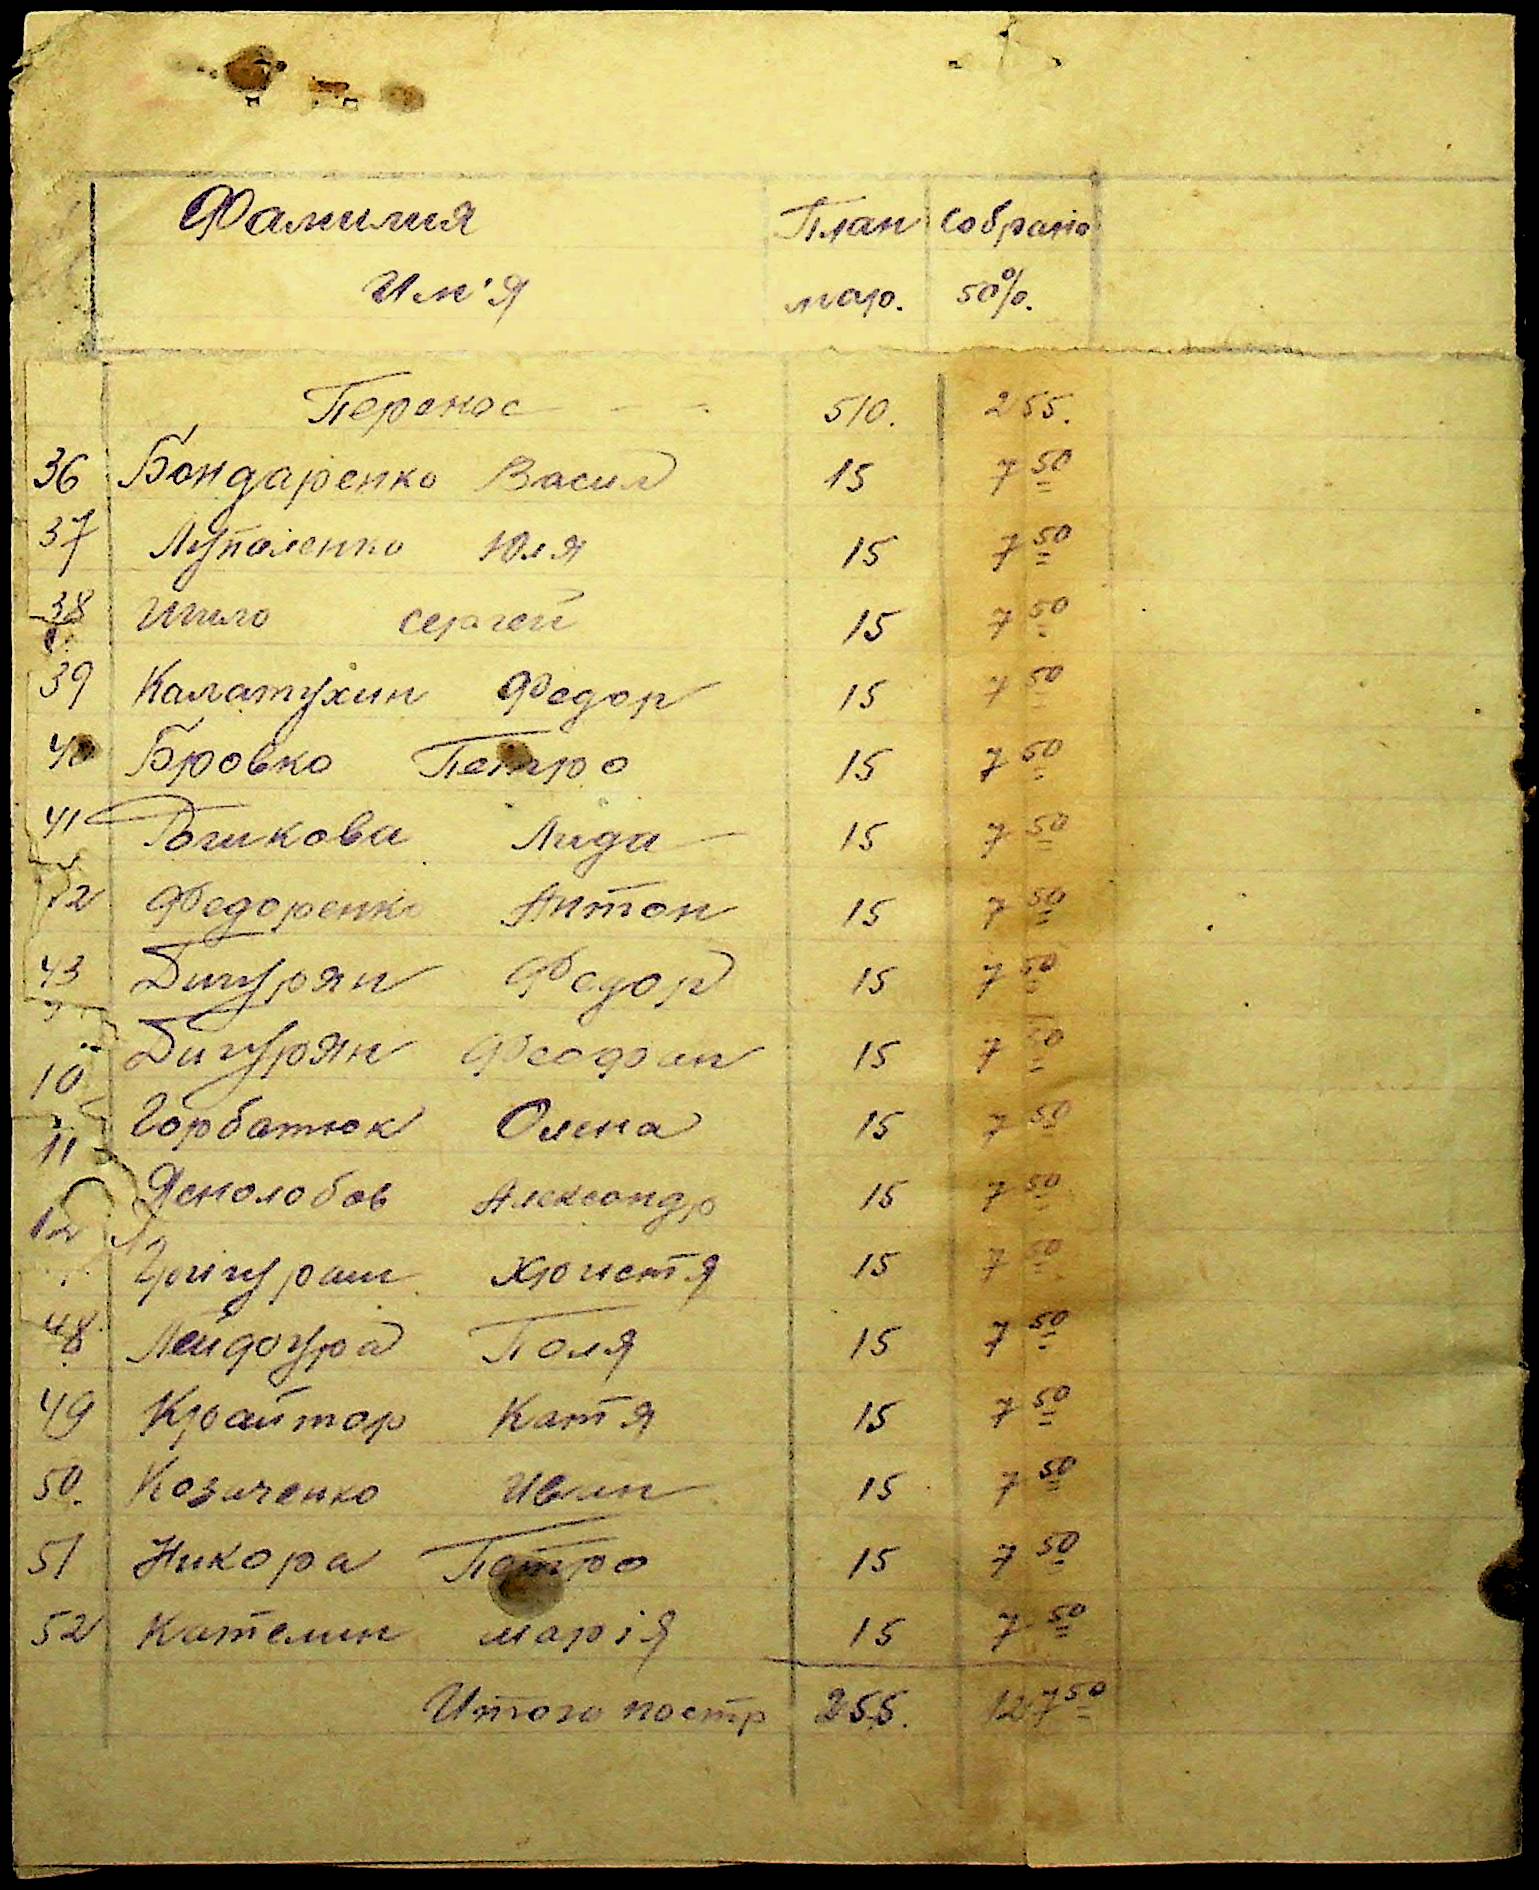 Фамилия План Собрано
Им'я мар. 50%.
Перенос - - 510. 255.
36 Бондаренко Васил 15 7 50
37 Лупаленко Юля 15 7 50
38 Шило Сергей 15 7 50
39 Калатухин Федор 15 7 50
40 Бровко Петро 15 7 50
41 Рогикова Лида 15 7 50
42 Федоренко Антон 15 7 50
43 Дигурян Федор 15 7 50
Дигурян Феофан 15 7 50
10 Горбатюк Олена 15 7 50
11 Яснолобов Александр 15 7 50
12 Христя 15 7 50
48 Лейдогура Поля 15 7 50
49 Крайтор Катя 15 7 50
50. Козаченко Иван 15 7 50
51 Никора Петро 15 7 50
52 Кателин Марія 15 7 50
Итого постр 255. 127 50